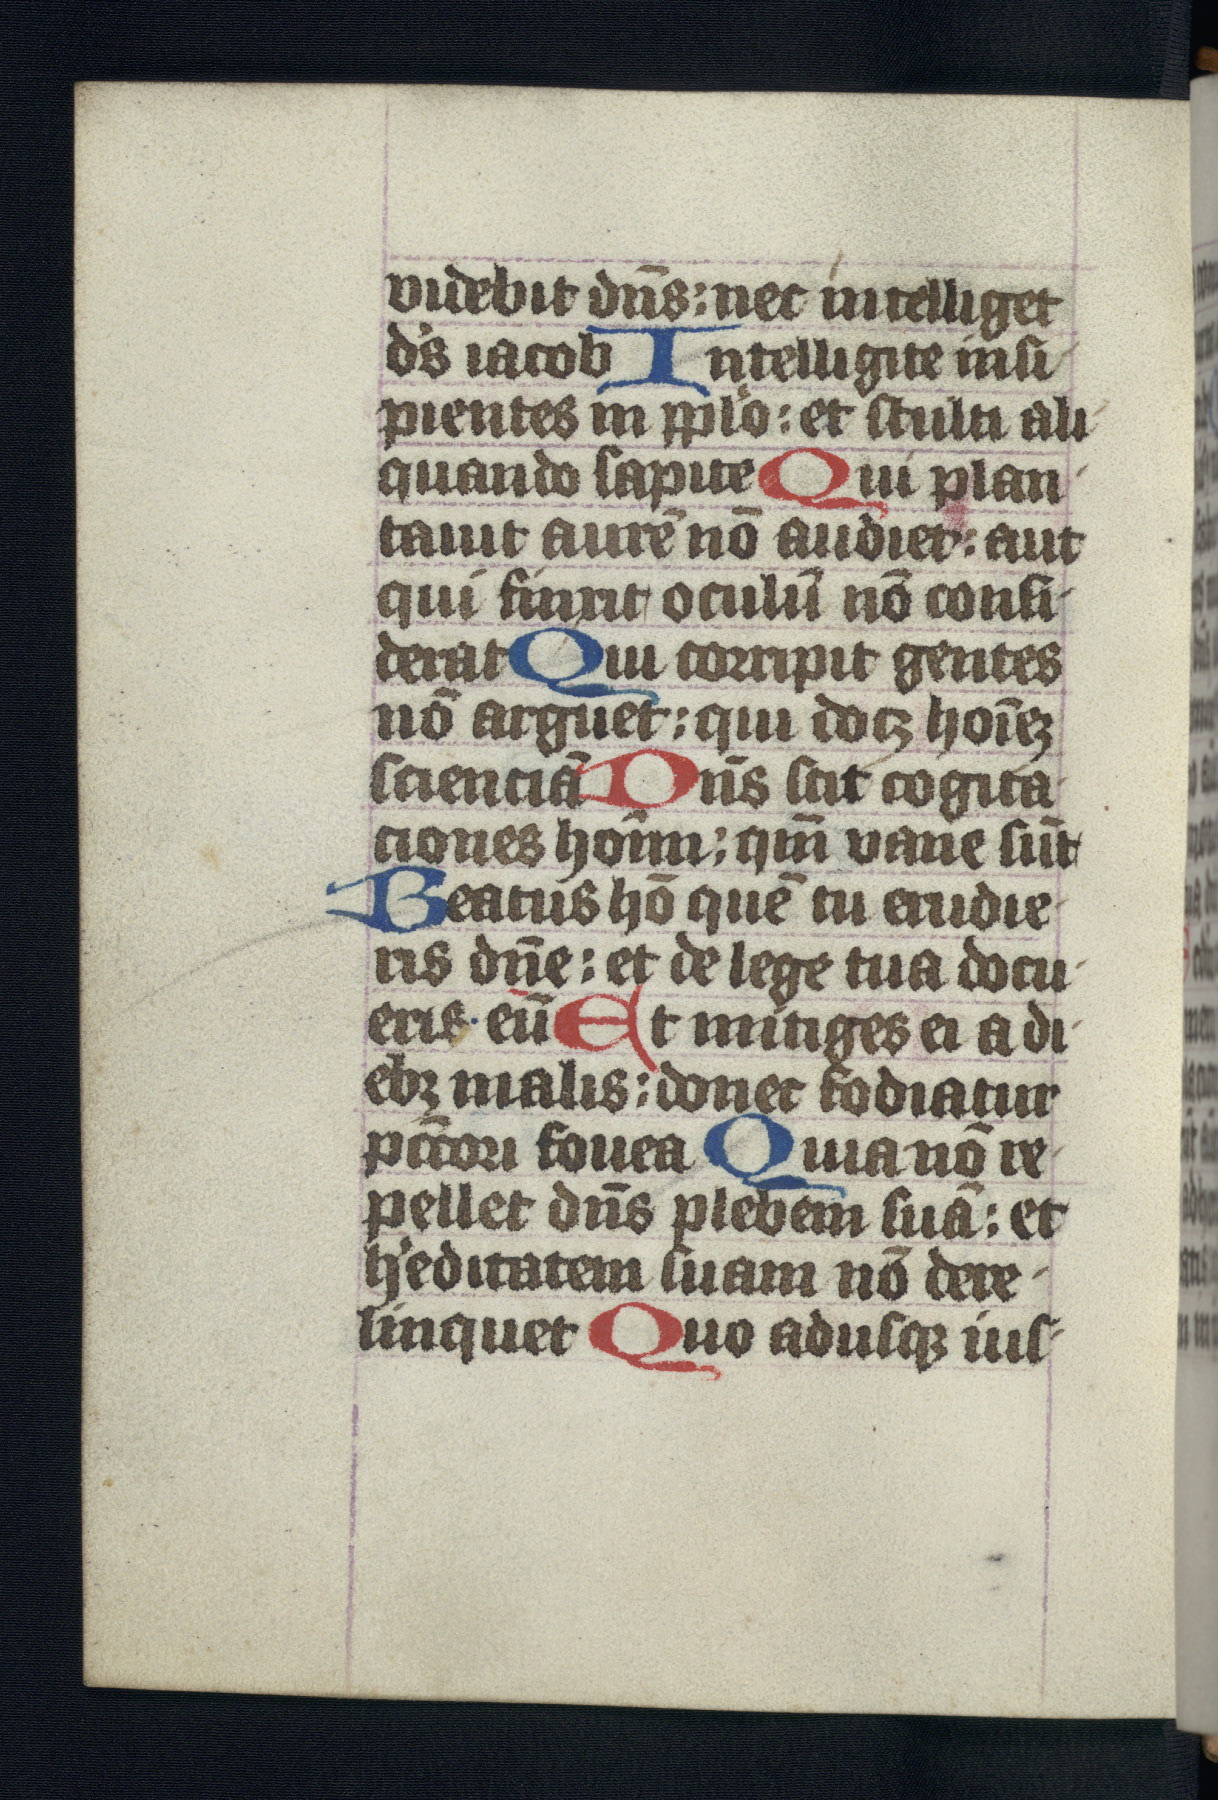 videbit dn̄s: nec intelliget
d's iacob Intelligite insi-
pientes in pplo: et stulti ali-
quando sapite Qui plan-
tauit aurē nō audiet: aut
qui finxit oculū nō consi-
derat Qui corripit gentes
nō arguet: qui docꝫ hoīeꝫ
scienciā Dn̄s scit cogita-
ciones hoīm: qm̄ vane sūt
Beatus hō quē tu erudie-
ris dn̄e: et de lege tua docu-
eris eū Et mitiges ei a di-
ebꝫ malis: donec fodiatur
pcc̄ori fouea Quia nō re-
pellet dn̄s plebem suā: et
h'editatem suam nō dere-
linquet Quo adusqꝫ ius-